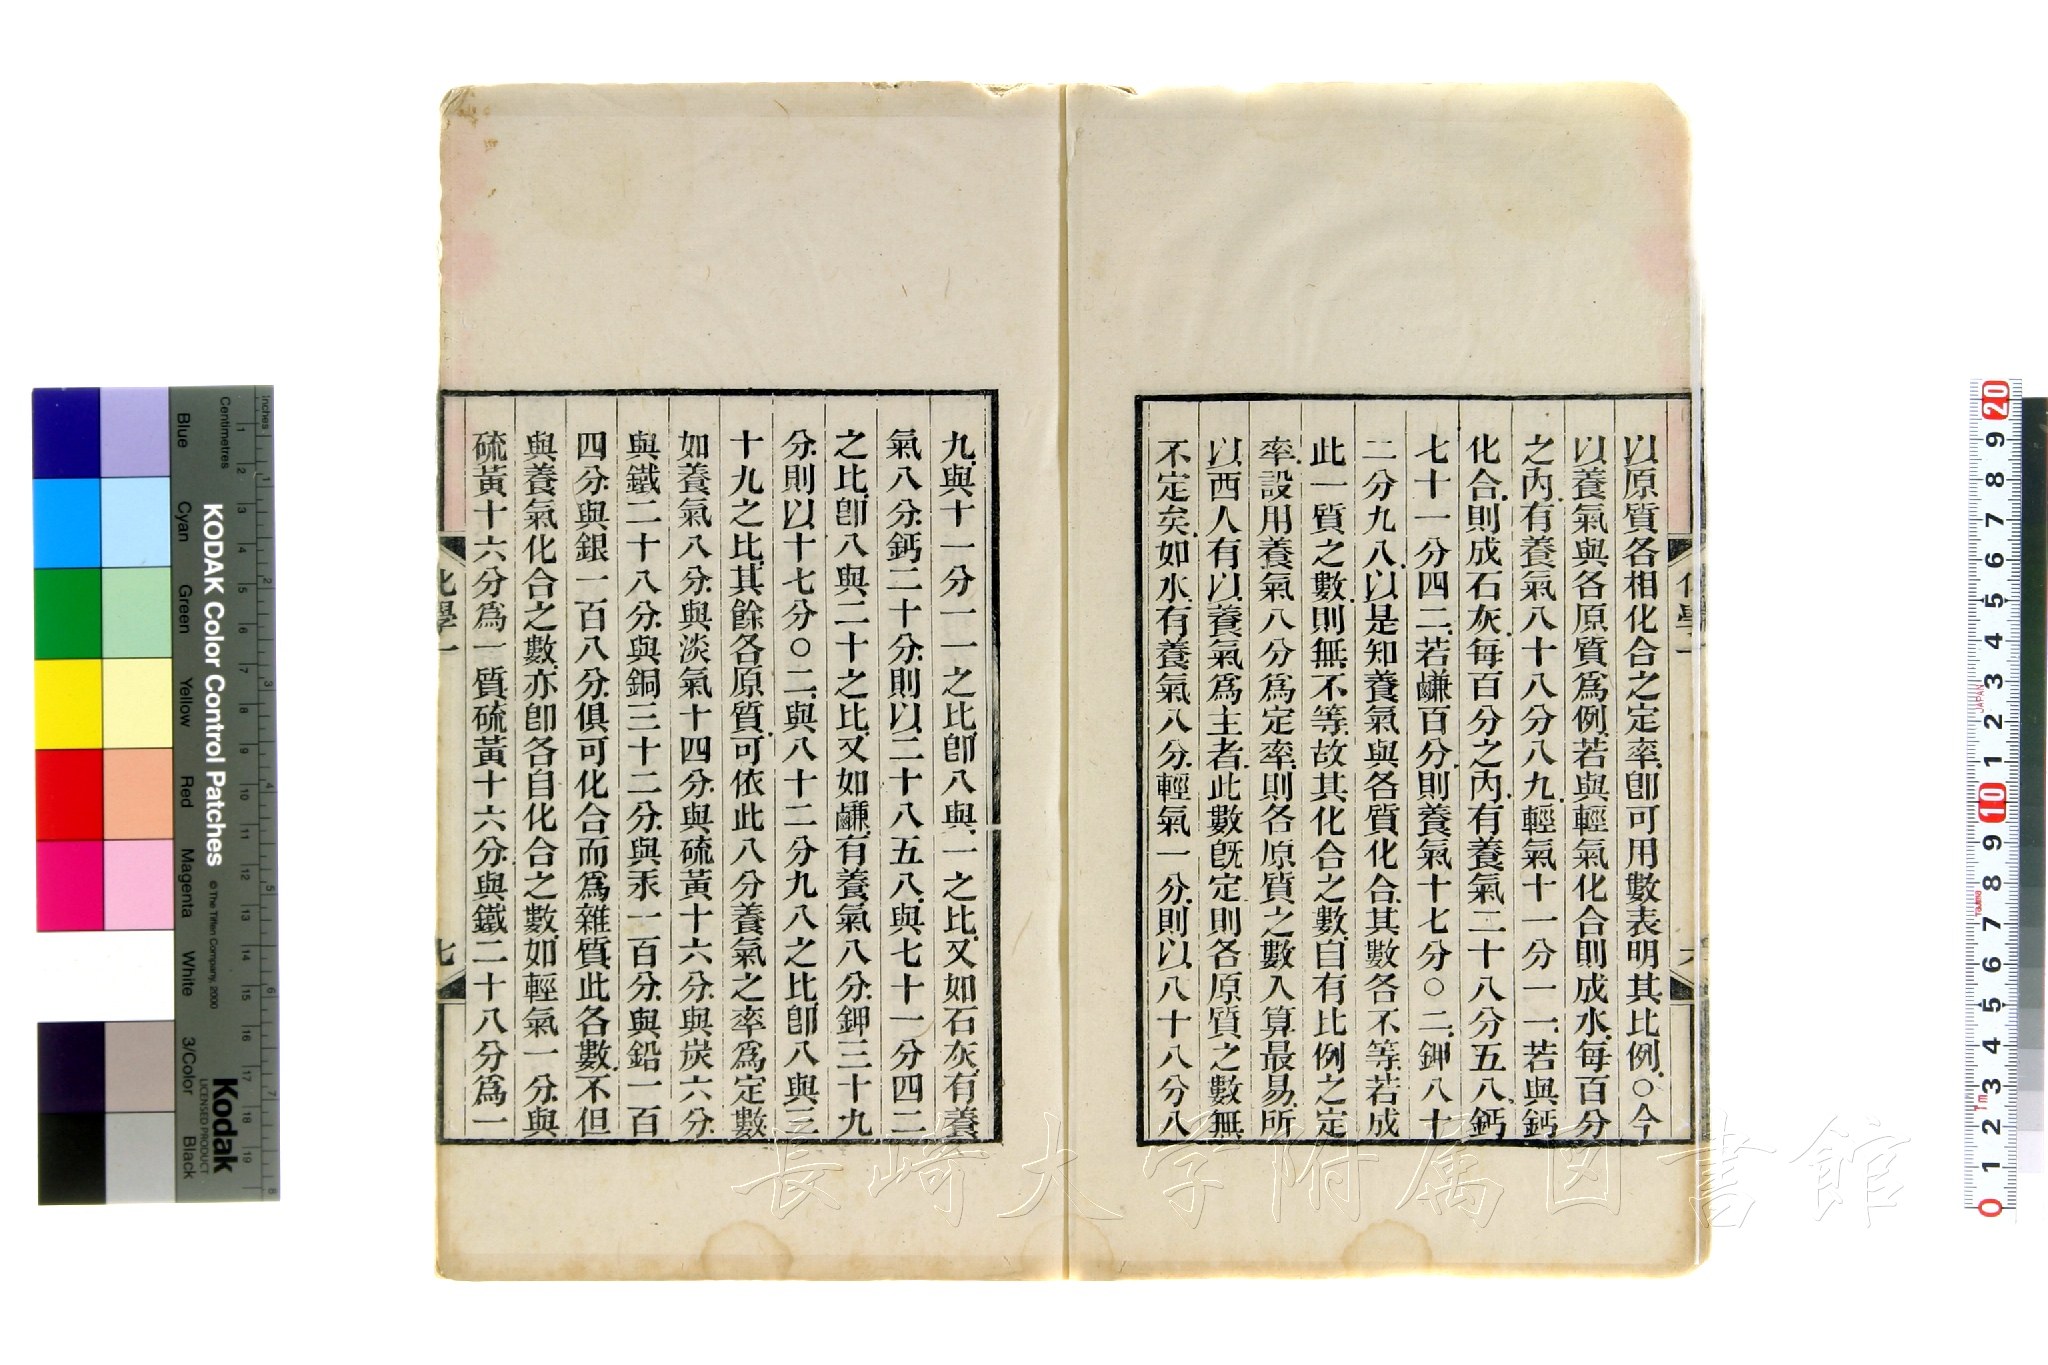 以原質各相化合之定率卽可用數表明其比例○今
以養氣與各原質爲例若與輕氣化合則成水每百分
之內有養氣八十八分八九輕氣十一分一一若與鈣
化合則成石灰每百分之內有養氣二十八分五八鈣
七十一分四二若鹻百分則養氣十七分○二鉀八十
二分九八以是知養氣與各質化合其數各不等若成
此一質之數則無不等故其化合之數自有比例之定
率設用養氣八分爲定率則各原質之數入算最易所
以西人有以養氣爲主者此數旣定則各原質之數無
不定矣如水有養氣八分輕氣一分則以八十八分八
九與十一分一一之比卽八與一之比又如石灰有養
氣八分鈣二十分則以二十八五八與七十一分四二
之比卽八與二十之比又如鹻有養氣八分鉀三十九
分則以十七分○二與八十二分九八之比卽八與三
十九之比其餘各原質可依此八分養氣之率爲定數
如養氣八分與淡氣十四分與硫黃十六分與炭六分
與鐵二十八分與銅三十二分與汞一百分與鉛一百
四分與銀一百八分俱可化合而爲雜質此各數不但
與養氣化合之數亦卽各自化合之數如輕氣一分與
硫黃十六分爲一質硫黃十六分與鐵二十八分爲一
化學一
七
長崎大学附属図書館
KODAK Color Control Patches
© The Tiffen Company, 2000
Kodak
LICENSED PRODUCT
Inches
Centimetres
Blue
Cyan
Green
Yellow
Red
Magenta
White
3/Color
Black
1 2 3 4 5 6 7 8
1 2 3 4 5 6 7 8 9 10 11 12 13 14 15 16 17 18 19
20 9 8 7 6 5 4 3 2 1 10 9 8 7 6 5 4 3 2 1 0
JAPAN